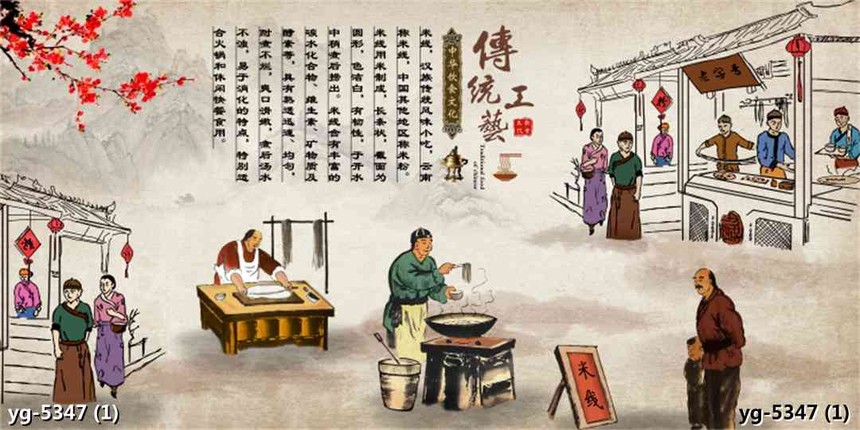 傳統工藝
中华饮食文化
Traditional food
of chinese
米线，汉族传统风味小吃，云南
称米线，中国其他地区称米粉。
米线用米制成，长条状，截面为
圆形，色洁白，有韧性，于开水
中稍煮后捞出。米线含有丰富的
碳水化合物、维生素、矿物质及
酵素等，具有熟透迅速、均匀，
耐煮不烂，爽口滑嫩，煮后汤水
不浊，易于消化的特点，特别适
合火锅和休闲快餐食用。
老字号
米线
yg-5347 (1)
yg-5347 (1)